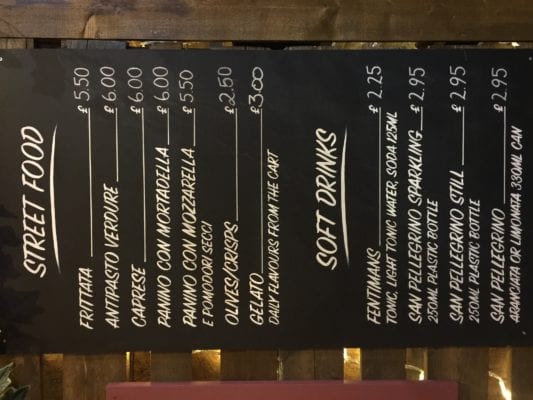 STREET FOOD
FRITTATA £ 5.50
ANTIPASTO VERDURE £ 6.00
CAPRESE £ 6.00
PANINO CON MORTADELLA £ 6.00
PANINO CON MOZZARELLA £ 5.50
E POMODORI SECCI
OLIVES/CRISPS £2.50
GELATO £3.00
DAILY FLAVOURS FROM THE CART
SOFT DRINKS
FENTIMANS £ 2.25
TONIC, LIGHT TONIC WATER, SODA 125ML
SAN PELLEGRINO SPARKLING £ 2.95
250ML PLASTIC BOTTLE
SAN PELLEGRINO STILL £ 2.95
250ML PLASTIC BOTTLE
SAN PELLEGRINO £ 2.95
ARANCIATA OR LIMONATA 330ML CAN